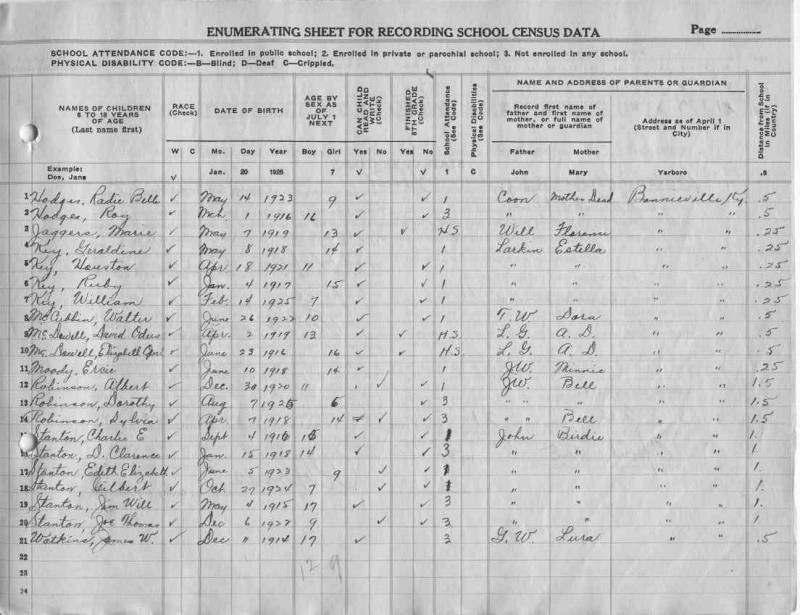 ENUMERATING SHEET FOR RECORDING SCHOOL CENSUS DATA Page
SCHOOL ATTENDANCE CODE:—1. Enrolled in public school; 2. Enrolled in private or parochial school; 3. Not enrolled in any school.
PHYSICAL DISABILITY CODE:—B—Blind; D—Deaf C—Crippled.
NAMES OF CHILDREN 6 TO 18 YEARS OF AGE (Last name first) RACE (Check) DATE OF BIRTH AGE BY SEX AS OF JULY 1 NEXT CAN CHILD READ AND WRITE (Check) FINISHED 8TH GRADE (Check) School Attendance (See Code) Physical Disabilities (See Code) NAME AND ADDRESS OF PARENTS OR GUARDIAN Distance from School in Miles (if in Country)
Record first name of father and first name of mother, or full name of mother or guardian Address as of April 1 (Street and Number if in City)
W C Mo. Day Year Boy Girl Yes No Yes No Father Mother
Example: Doe, Jane V Jan. 20 1926 7 V V 1 C John Mary Yarboro .8
1 Hodges, Radie Belle ✓ May 14 1923 9 ✓ ✓ 1 Coon Mother Dead Bonnieville, Ky. .5
2 Hodges, Roy ✓ Mch. 1 1916 16 ✓ ✓ 3 " " " " .5
3 Jaggers, Marie ✓ May 7 1919 13 ✓ ✓ H.S. Will Florence " " .25
4 Key, Geraldine ✓ May 8 1918 14 ✓ 1 Larkin Estella " " .25
5 Key, Houston ✓ Apr 18 1921 11 ✓ ✓ 1 " " " " .25
6 Key, Ruby ✓ Jan. 4 1917 15 ✓ ✓ 1 " " " " .25
7 Key, William ✓ Feb. 14 1925 7 ✓ ✓ 1 " " " " .25
8 McCubbin, Walter ✓ June 26 1922 10 ✓ ✓ 1 T. W. Dora " " .5
9 McDowell, David Odus ✓ Apr. 2 1919 13 ✓ ✓ H.S. L. G. A. D. " " .5
10 McDowell, Elizabeth ✓ June 23 1916 16 ✓ ✓ H.S. L. G. A. D. " " .5
11 Moody, ✓ June 10 1918 14 ✓ 1 J.W. Minnie " " .25
12 Robinson, Albert ✓ Dec. 30 1920 11 ✓ ✓ 1 J.W. Bell " " 1.5
13 Robinson, Dorothy ✓ Aug 7 1925 6 ✓ 3 " " " " 1.5
14 Robinson, Sylvia ✓ Apr. 7 1918 14 ✓ ✓ 3 " " Bell " " 1.5
Stanton, Charlie E ✓ Sept 4 1916 15 ✓ ✓ 1 John Birdie " " 1.
Stanton, D. Clarence ✓ Jan. 15 1918 14 ✓ ✓ 3 " " " " 1.
17 Stanton, Edith Elizabeth ✓ June 5 1923 9 ✓ ✓ 1 " " " " 1.
18 Stanton, Gilbert ✓ Oct. 27 1924 7 ✓ ✓ 1 " " " " 1.
19 Stanton, Jim Will ✓ May 4 1915 17 ✓ ✓ 3 " " " " 1.
20 Stanton, Joe Thomas ✓ Dec 6 1922 9 ✓ ✓ 3 " " " " 1.
21 Watkins, James W. ✓ Dec 11 1914 17 ✓ 3 G. W. Lura " " .5
22
23 12 9
24